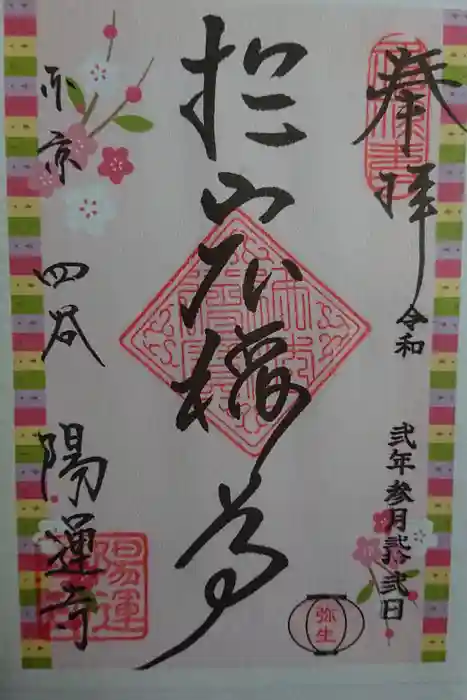 奉拝
令和 弐年参月弐拾弐日
於岩
東京 四谷 陽運寺
陽運寺
弥生